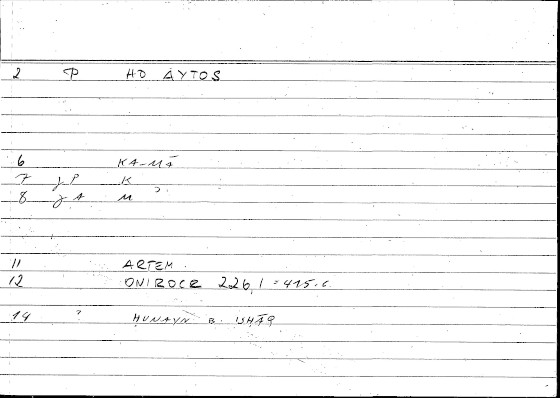 2 P HO AYTOS
6 KA-MĀ
7 γP K
8 γA M ?
11 ARTEM.
12 ONIROCR 226,1 = 415.6
14 ? HUNAYN B. ISHĀQ